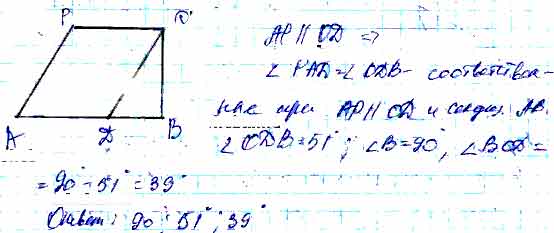 P C
A D B
AP || CD =>
∠ PAD = ∠ CDB - соответствен-
ные при AP || CD и секущ. AB.
∠ CDB = 51°; ∠B = 90°, ∠BCD =
= 90° - 51° = 39°
Ответ: 90°; 51°; 39°